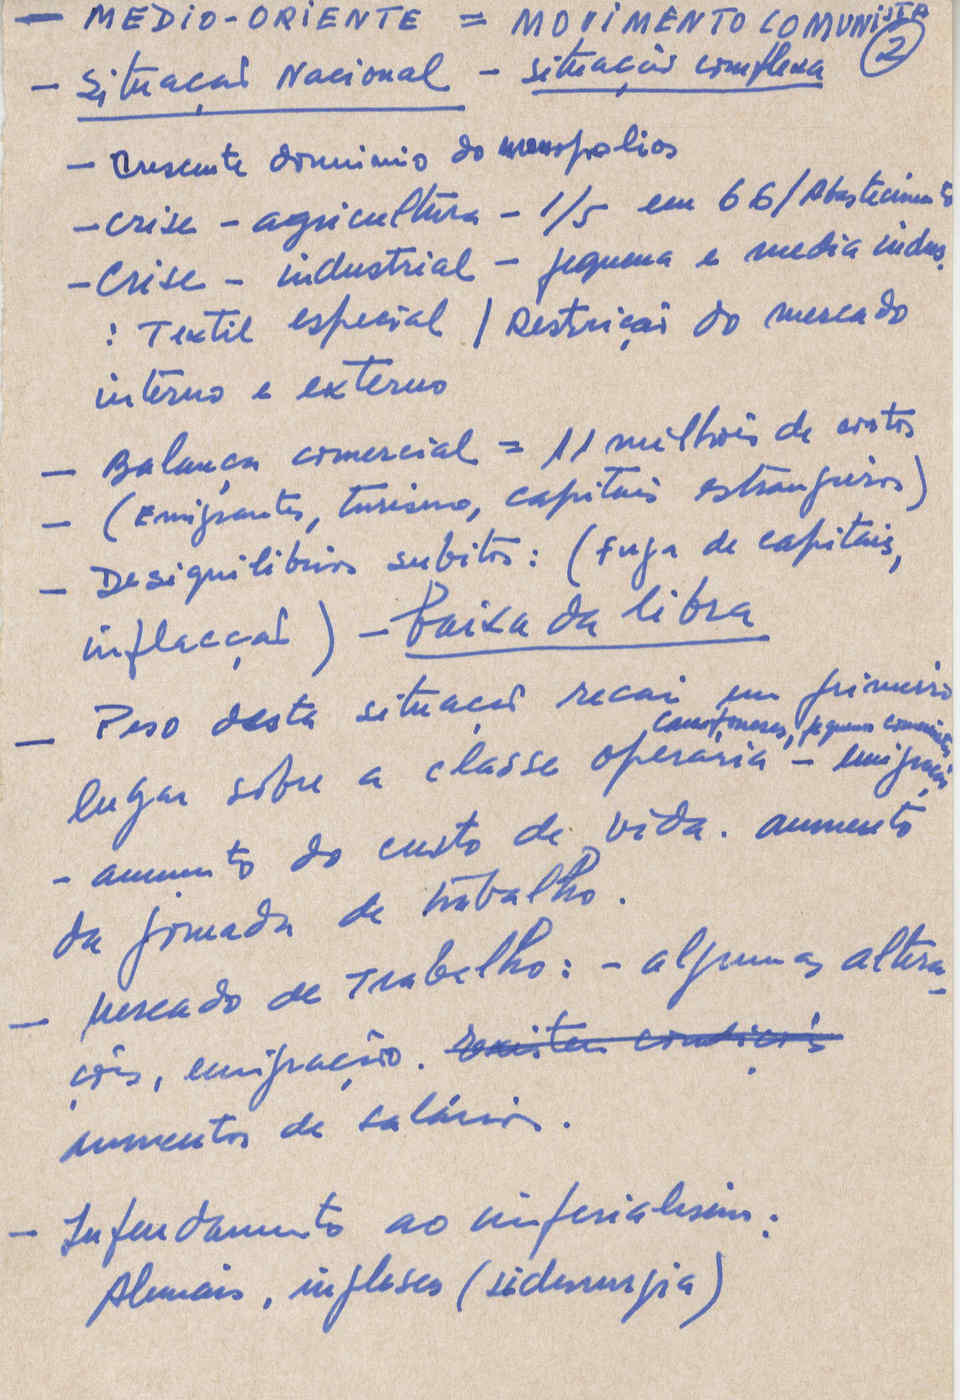 — MEDIO-ORIENTE = MOVIMENTO COMUNISTA
2
— Situação Nacional — situação complexa
— Crescente dominio do monopolios
— Crise — agricultura — 1/5 em 66 / Abastecimento
— Crise — industrial — pequena e media indus.
: Textil especial / Restrição do mercado
interno e externo
— Balança comercial = 11 milhões de contos
— (Emigrantes, turismo, capitais estrangeiros)
— Desiquilibrios subitos: (Fuga de capitais,
inflacção) — baixa da libra
— Peso desta situação recai em primeiro
camponeses, pequenos comerciantes
lugar sôbre a classe operaria — emigração
- aumento do custo de vida. aumento
da jornada de trabalho.
— Mercado de Trabalho: — algumas altera-
ções, emigração. Existem condições
aumentos de salários.
— Infeudamento ao imperialismo:
Alemães, ingleses (siderurgia)